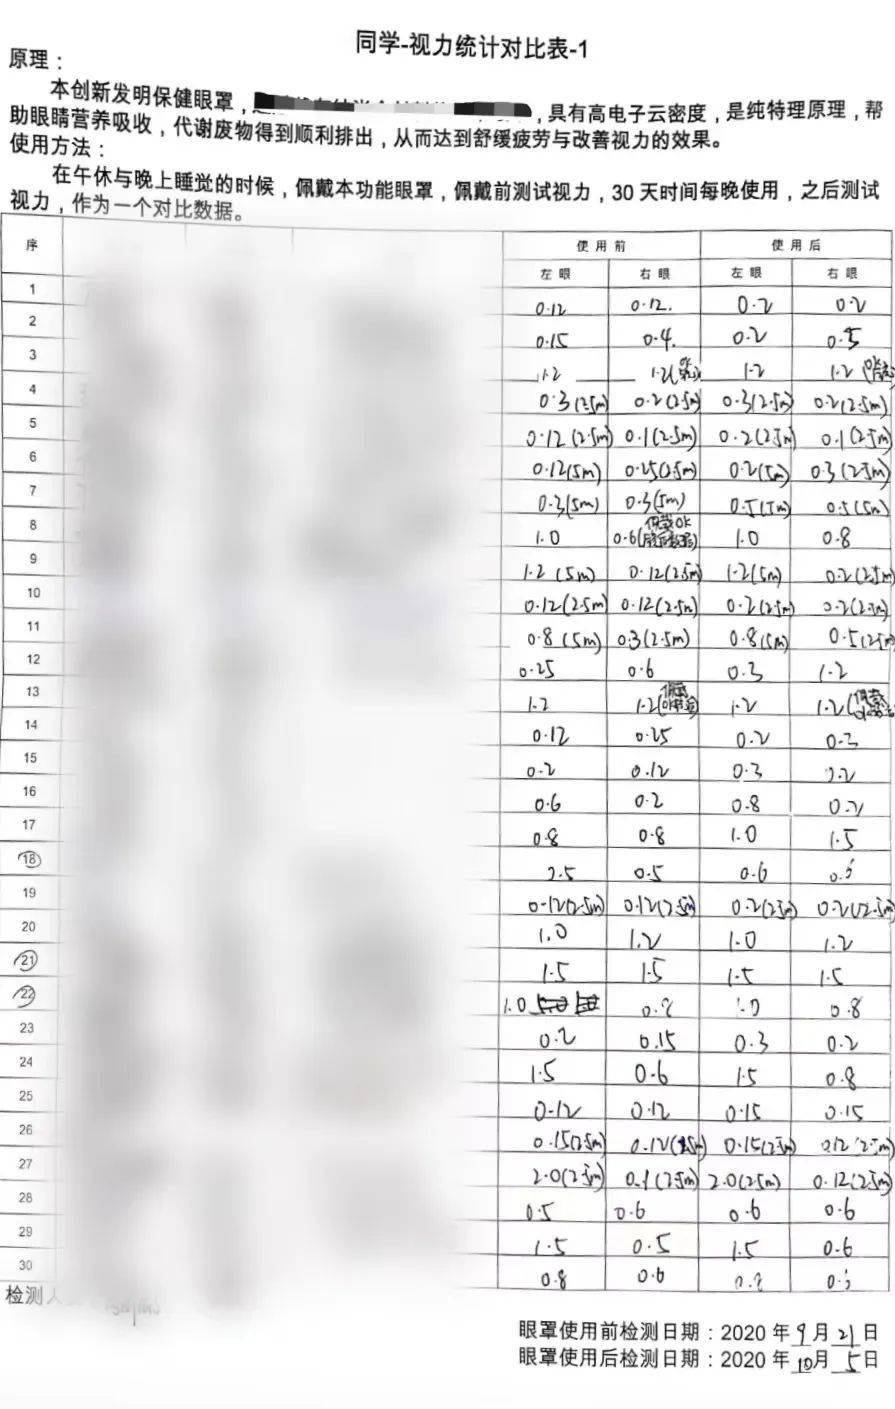 同学-视力统计对比表-1
原理：
本创新发明保健眼罩，，具有高电子云密度，是纯特理原理，帮
助眼睛营养吸收，代谢废物得到顺利排出，从而达到舒缓疲劳与改善视力的效果。
使用方法：
在午休与晚上睡觉的时候，佩戴本功能眼罩，佩戴前测试视力，30 天时间每晚使用，之后测试
视力，作为一个对比数据。
序 使用前 使用后
左眼 右眼 左眼 右眼
1 0.12 0.12. 0.2 0.2
2 0.15 0.4. 0.2 0.5
3 1.2 1.2 1.2 1.2
4 0.3(2.5m) 0.2(2.5m) 0.3(2.5m) 0.2(2.5m)
5 0.12(2.5m) 0.1(2.5m) 0.2(2.5m) 0.1(2.5m)
6 0.12(5m) 0.25(2.5m) 0.2(5m) 0.3(2.5m)
7 0.3(5m) 0.3(5m) 0.5(5m) 0.5(5m)
8 1.0 0.6 1.0 0.8
9 1.2(5m) 0.12(2.5m) 1.2(5m) 0.2(2.5m)
10 0.12(2.5m) 0.12(2.5m) 0.2(2.5m) 0.2(2.5m)
11 0.8(5m) 0.3(2.5m) 0.8(5m) 0.5(2.5m)
12 0.25 0.6 0.3 1.2
13 1.2 1.2 1.2 1.2
14 0.12 0.25 0.2 0.3
15 0.2 0.12 0.3 0.2
16 0.6 0.2 0.8 0.2
17 0.8 0.8 1.0 1.5
18 0.5 0.6
19 0.12(2.5m) 0.12(2.5m) 0.2(2.5m) 0.2(2.5m)
20 1.0 1.2 1.0 1.2
21 1.5 1.5 1.5 1.5
22 1.0 1.0 0.8
23 0.2 0.15 0.3 0.2
24 1.5 0.6 1.5 0.8
25 0.12 0.12 0.15 0.15
26 0.15(2.5m) 0.12(2.5m) 0.15(2.5m) 0.12(2.5m)
27 2.0(2.5m) 0.1(2.5m) 2.0(2.5m) 0.12(2.5m)
28 0.5 0.6 0.6 0.6
29 1.5 0.5 1.5 0.6
30 0.8 0.6
检测人
眼罩使用前检测日期：2020 年 9 月 21 日
眼罩使用后检测日期：2020 年 10 月 5 日